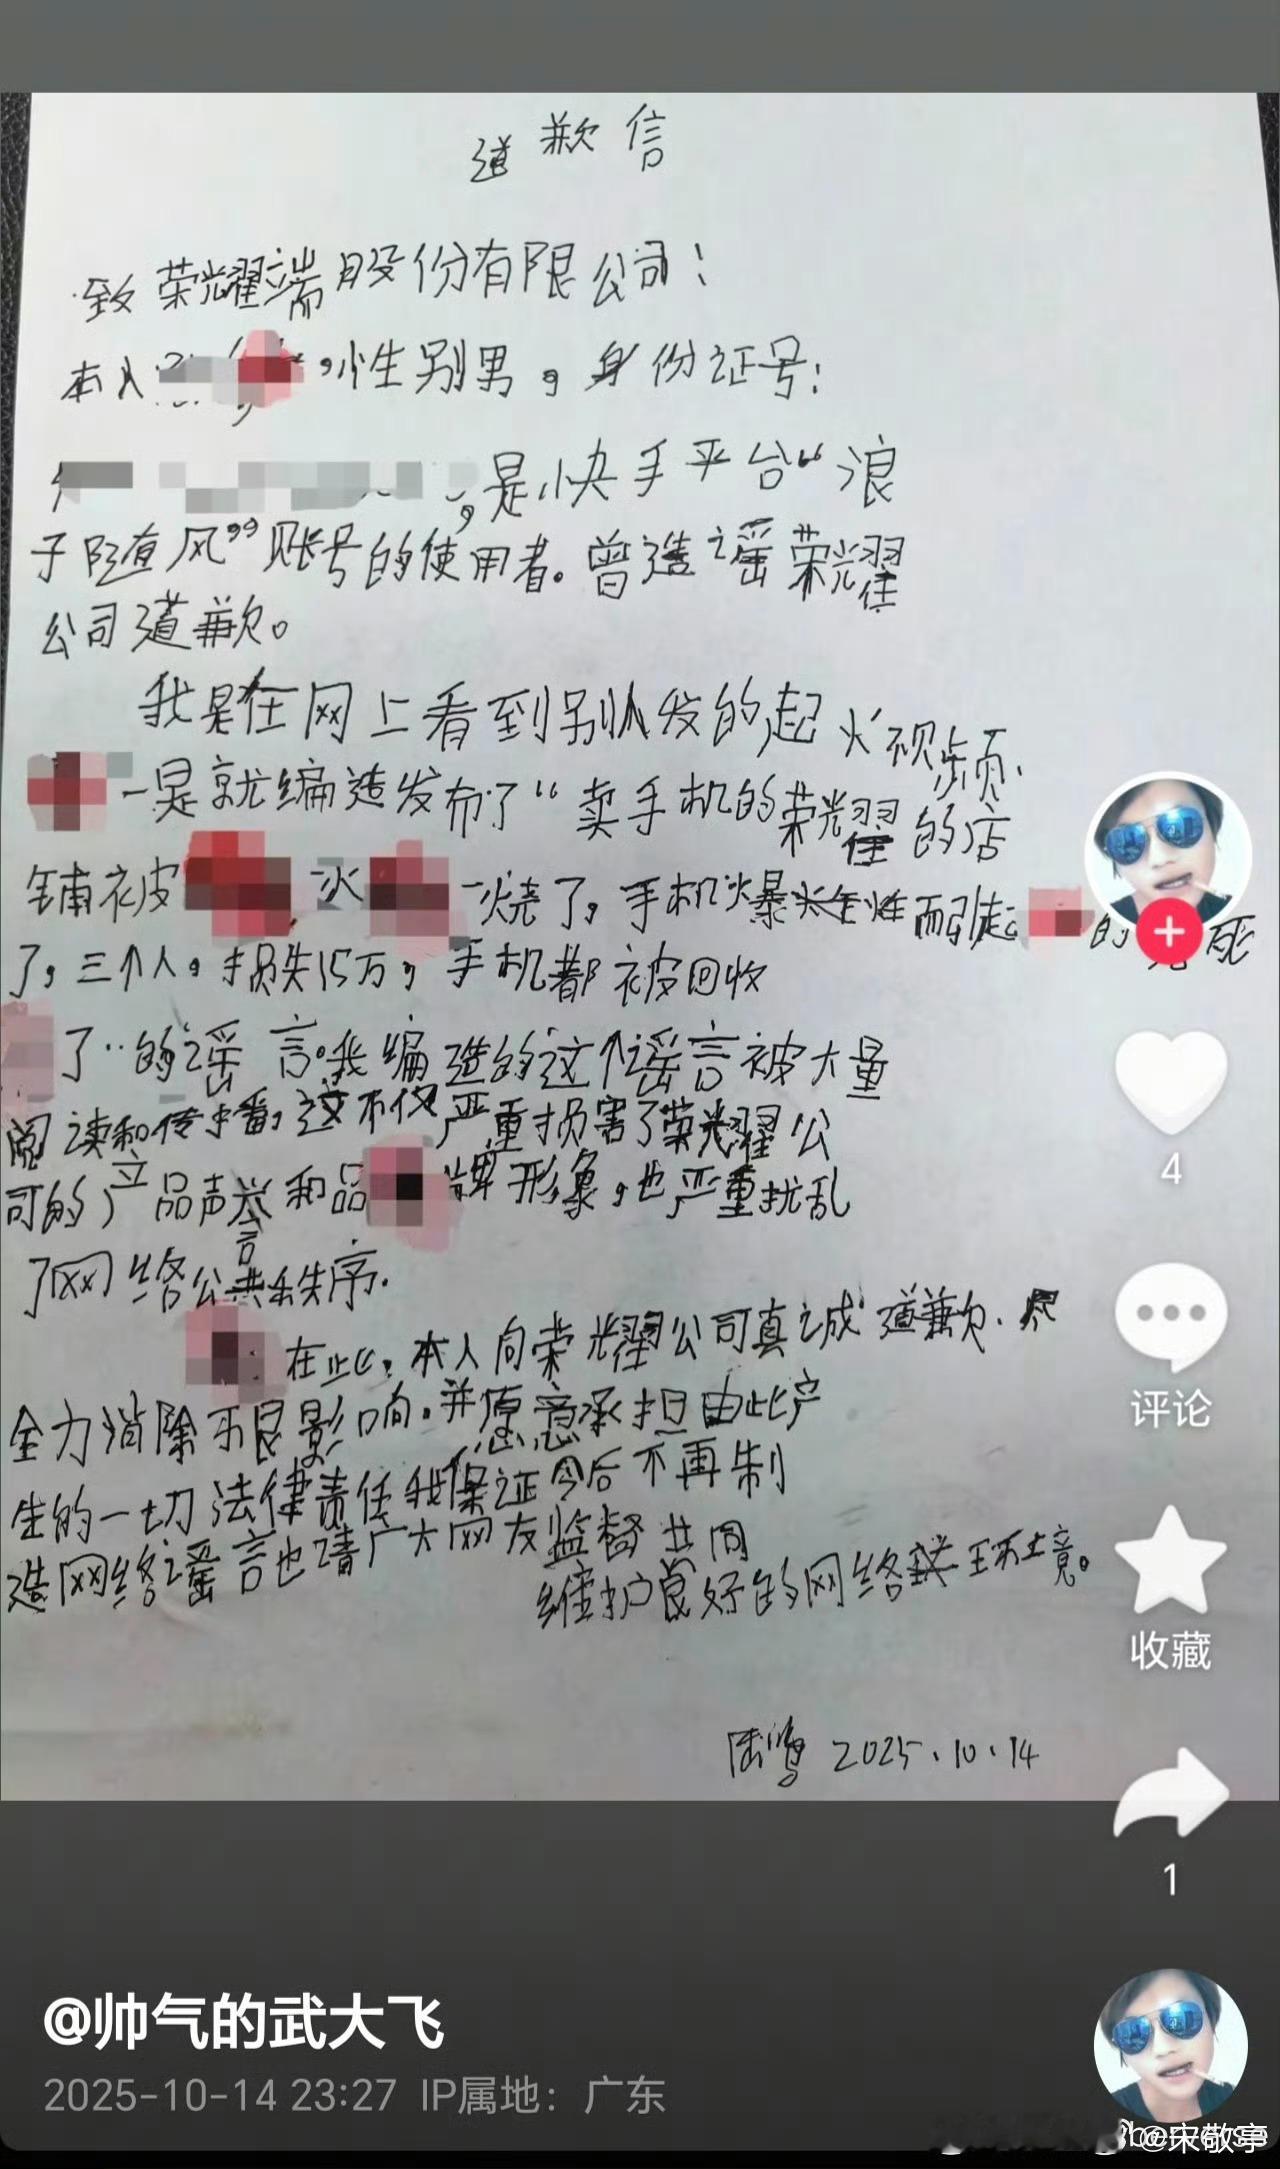 道歉信
致荣耀端股份有限公司：
本人，性别男，身份证号：
，是快手平台“浪
子随风”账号的使用者。曾造谣荣耀
公司道歉。
我是在网上看到别人发的起火视频、
一是就编造发布了“卖手机的荣耀的店
铺被火烧了，手机爆炸性而引起的死
了，三个人，损失15万，手机都被回收
了”的谣言。我编造的这个谣言被大量
阅读和传播，这不仅严重损害了荣耀公
司的产品声誉和品牌形象，也严重扰乱
了网络公共秩序.
在此，本人向荣耀公司真诚道歉.尽
全力消除不良影响.并愿意承担由此产
生的一切法律责任我保证今后不再制
造网络谣言也请广大网友监督共同
维护良好的网络环境。
陆鸣 2025.10.14
4
评论
收藏
1
@帅气的武大飞
2025-10-14 23:27 IP属地：广东
@宋敬亭